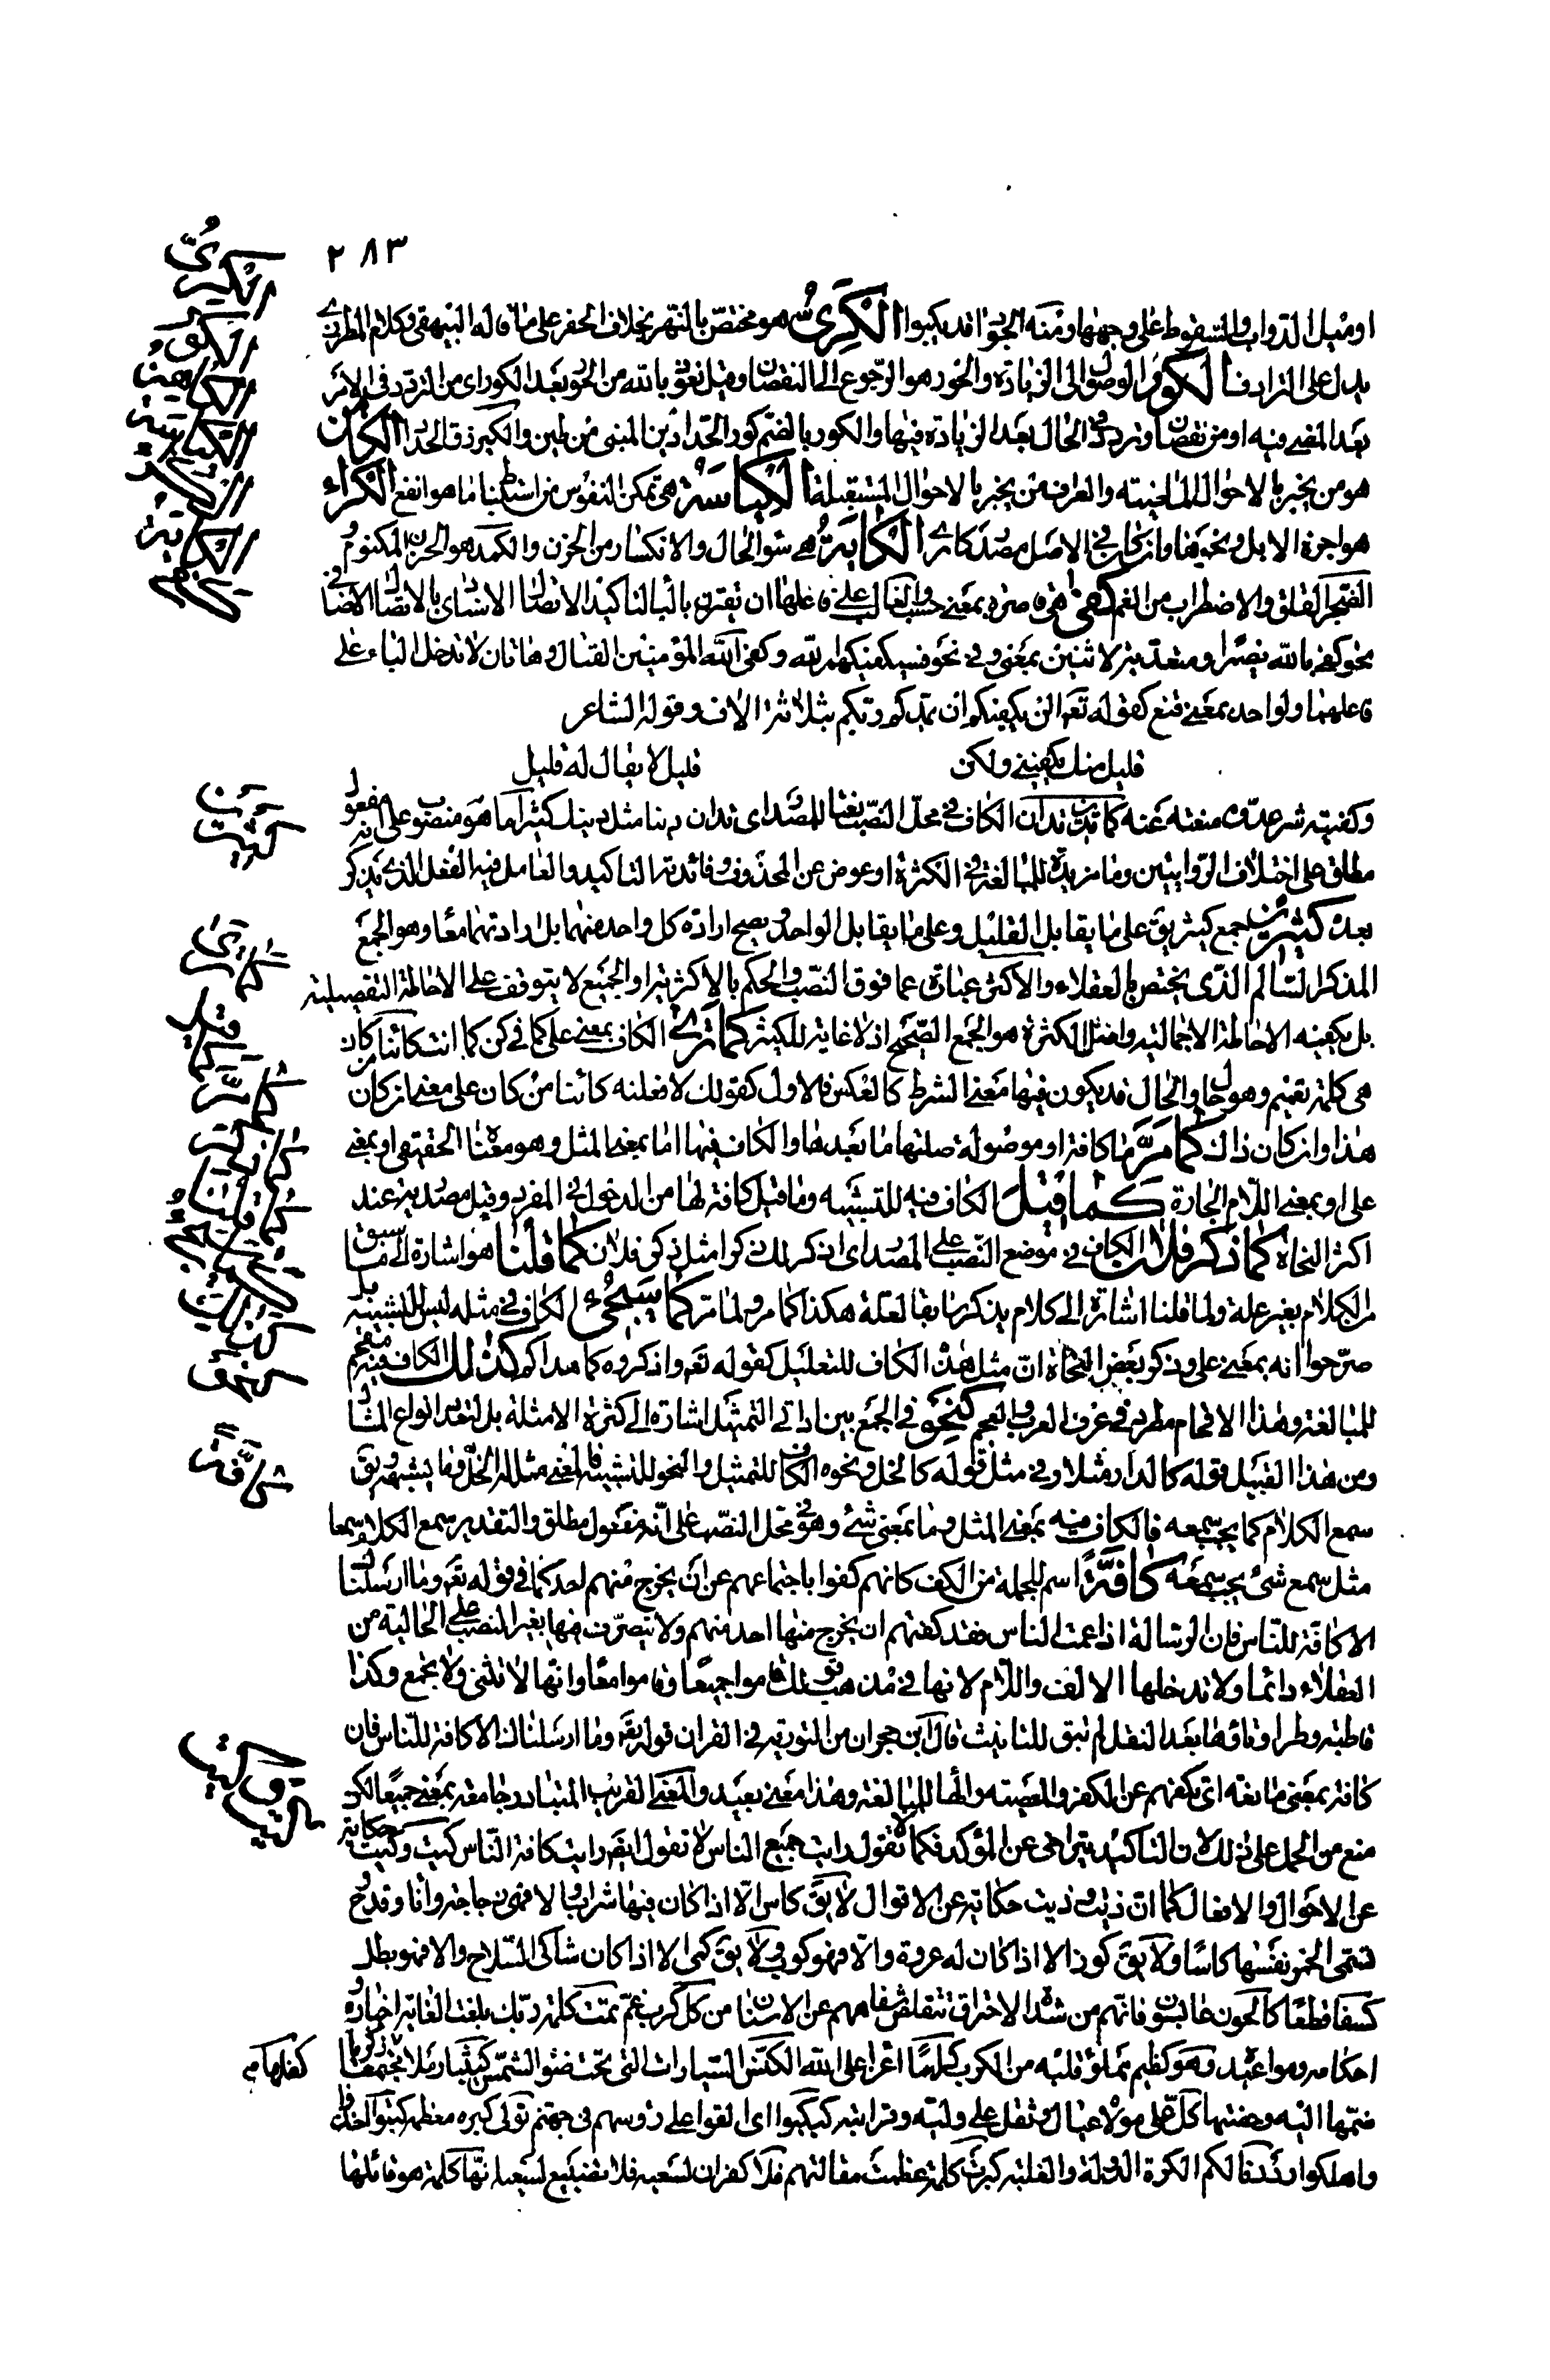 ٢٨٣
او ميل الدواب والسقوط على وجهها ومنه الجواد قد يكبوا الكرى هو مختص بالنهر بخلاف الحفر على ما قاله البيهقى وكلام المطرزى
يدل على الترادف الكور الوصول الى الزيادة والحور هو الرجوع الى النقصان وقيل نعوذ بالله من الحور بعد الكور اى من التردد فى الامر
بعد المضى فيه او من نقصان وتردد فى الحال بعد الزيادة فيها والكور بالضم كور الحداد بن المبنى من طين والكير زق الحداد الكاهن
هو من يخبر بالاحوال الماضية والعراف من يخبر بالاحوال المستقبلة الكياسة هى تمكن النفوس من استنباط ما هو انفع الكراء
هو اجرة الابل ونحوها وان كان فى الاصل مصدر كارى الكآبة هى سوء الحال والانكسار من الحزن والكمد هو الحزن المكتوم و
الضجر القلق والاضطراب من الغم كفى هى قاصرة بمعنى حسب والغالب على فاعلها ان تقترن بالباء لتاكيد الاتصال الاسنادى بالاتصال الاضافى
نحو كفى بالله نصيرا ومتعدية لاثنين بمعنى وفى نحو فسيكفيكهم الله وكفى الله المؤمنين القتال وهاتان لا تدخل الباء على
فاعلهما ولواحد بمعنى قنع كقوله تعه الن يكفيكم ان يمدكم ربكم بثلاثة الاف وقوله الشاعر
قليل منك يكفينى ولكن قليل لا يقال له قليل
وكفيته شر عدوى منعته عنه كما تدين تدان الكاف فى محل النصب نعتا للمصدر اى تدان دينا مثل دينك كثيرا ما هو منصوب على انه مفعول
مطلق على اختلاف الروايتين وما مزيدة للمبالغة فى الكثرة او عوض عن المحذوف وفائدته التاكيد والعامل فيه الفعل الذى يذكر
بعده كثيرين جمع كثير يق على ما يقابل القليل وعلى ما يقابل الواحد ويصح ارادة كل واحد منهما بل ارادتهما معا وهو الجمع
المذكر السالم الذى يختص بالعقلاء والاكثر عبارة عما فوق النصف والحكم بالاكثرية او الجميع لا يتوقف على الاحاطة التفصيلية
بل يكفيه الاحاطة الاجمالية وافضل الكثرة هو الجمع الصحيح اذ لا غاية للكثير كما ترى الكاف بمعنى على كما فى كن كما انت كائنا من كان
هى كلمة تعميم وهو حال والحال قد يكون فيها معنى الشرط كالعكس فالاول كقولك لافعلنه كائنا من كان على معنى ان كان
هذا وان كان ذاك كما مر ما كافة او موصولة صلتها ما بعدها والكاف فيها اما بمعنى المثل وهو معناها الحقيقى او بمعنى
على او بمعنى اللام الجارة كما قيل الكاف فيه للتشبيه وما قبل كافة لها من الدخول فى المفرد وقيل مصدرية عند
اكثر النحاة كما ذكر فلان الكاف فى موضع النصب على المصدر اى اذكر لك ذكرا مثل ذكر فلان كما قلنا هو اشارة الى ما سبق
من الكلام بغير علة ولما قلنا اشارة الى كلام يذكر سابقا لعلة هكذا كما مر ولما مر كما سيجىء الكاف فى مثله ليس للتشبيه بل
صرحوا انه بمعنى على وذكر بعض النحاة ان مثل هذه الكاف للتعليل كقوله تعه واذكروه كما هداكم كذلك الكاف فيه مقحم
للمبالغة وهذا الاقحام مطرد فى عرف العرب والعجم كنحو فى الجمع بين اداتى التمثيل اشارة الى كثرة الامثلة بل لتعدد انواع المثال
ومن هذا القبيل قوله كالدار مثلا وفى مثل قوله كالخل ونحوه الكاف للتمثيل والنحو للتشبيه فالمعنى مثل الخل وما يشبهه ويق
سمع الكلام كما يجب سمعه فالكاف فيه بمعنى المثل وما بمعنى شىء وهو فى محل النصب على انه مفعول مطلق والتقدير سمع الكلام سمعا
مثل سمع شىء يجب سمعه كافة اسم للجملة من الكف كانهم كفوا باجتماعهم عن ان يخرج منهم احد كما فى قوله تعه وما ارسلناك
الا كافة للناس فان الرسالة اذا عمت الناس فقد كفتهم ان يخرج منها احد منهم ولا يتصرف فيها بغير النصب على الحالية من
العقلاء دائما ولا تدخلها الالف واللام لانها فى مذهب قولك قاموا جميعا وقاموا معا وانها لا تثنى ولا تجمع وكذا
قاطبة وطرا وتاؤها بعد النقل لم تبق للتانيث قال ابن حجر ان من التورية فى القران قوله تعه وما ارسلناك الا كافة للناس فان
كافة بمعنى مانعة اى تكفهم عن الكفر والمعصية والهاء للمبالغة وهذا معنى بعيد والمعنى القريب المتبادر جامعة بمعنى جميعا لكن
منع من الحمل على ذلك لان التاكيد يتراخى عن المؤكد فكما لا تقول رايت جميع الناس لا تقول ايضه رايت كافة الناس كيت وكيت حكاية
عن الاحوال والافعال كما ان ذيت وذيت حكاية عن الاقوال لا يق كاس الا اذا كان فيها شراب والا فهى زجاجة واناء وقدح و
تسمى الخمر نفسها كاسا ولا يق كوز الا اذا كان له عروة والا فهو كوب ولا يق كمى الا اذا كان شاكى السلاح والا فهو بطل
كسفا قطعا كالحون عابسون فانهم من شدة الاحتراق تتقلص شفاههم عن الاسنان من كل كرب غم تمت كلمة ربك بلغت الغاية اخباره و
احكامه ومواعيده وهو كظيم مملوء قلبه من الكرب كهلا على الله الكنس السيارات التى تحت ضوء الشمس كثيبا رملا مجتمعا كفلها
ضمها اليه وحضنها كل على مولاه عيال وثقل على وليه وقرابته كبكبوا اى القوا على رؤسهم فى جهنم تولى كبره معظمه كبتوا اخذوا
واهلكوا رددنا لكم الكرة الدولة والغلبة كبرت كلمة عظمت مقالتهم فلا كفران لسعيه فلا تضييع لسعيه انها كلمة هو قائلها